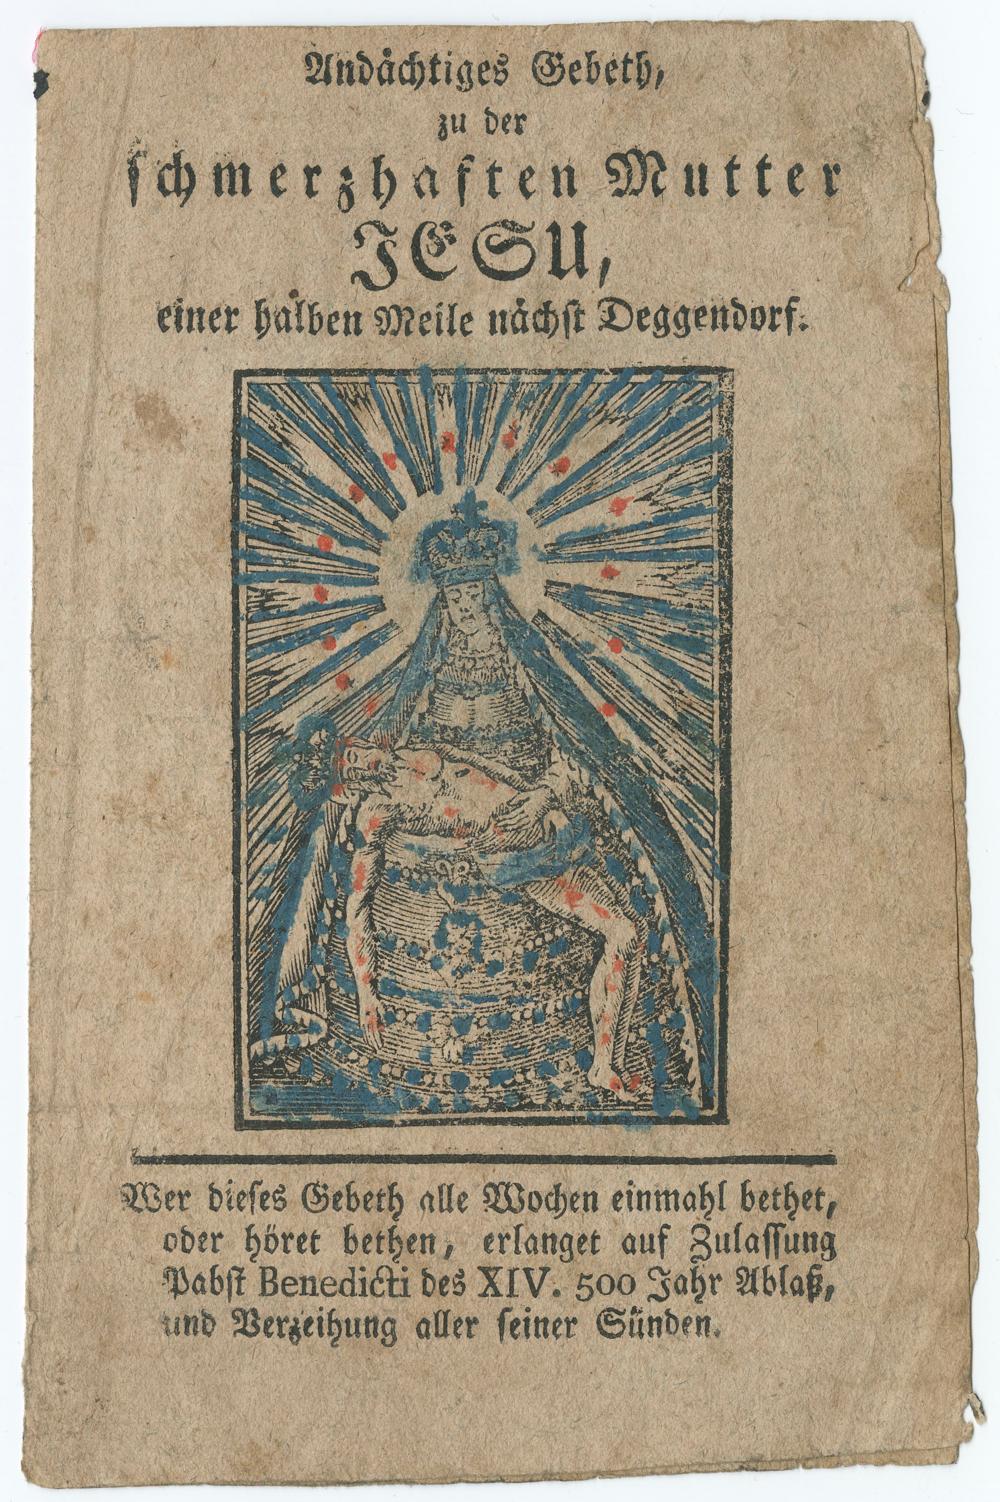 Andaͤchtiges Gebeth,
zu der
ſchmerzhaften Mutter
JESU,
einer halben Meile naͤchſt Deggendorf.
Wer dieſes Gebeth alle Wochen einmahl bethet,
oder hoͤret bethen, erlanget auf Zulaſſung
Pabſt Benedicti des XIV. 500 Jahr Ablaß,
und Verzeihung aller ſeiner Suͤnden.